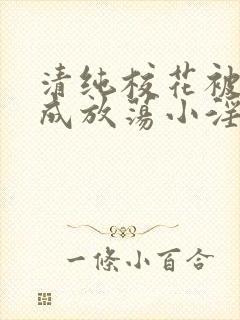 清纯校花被
成放荡小淫
一條小百合